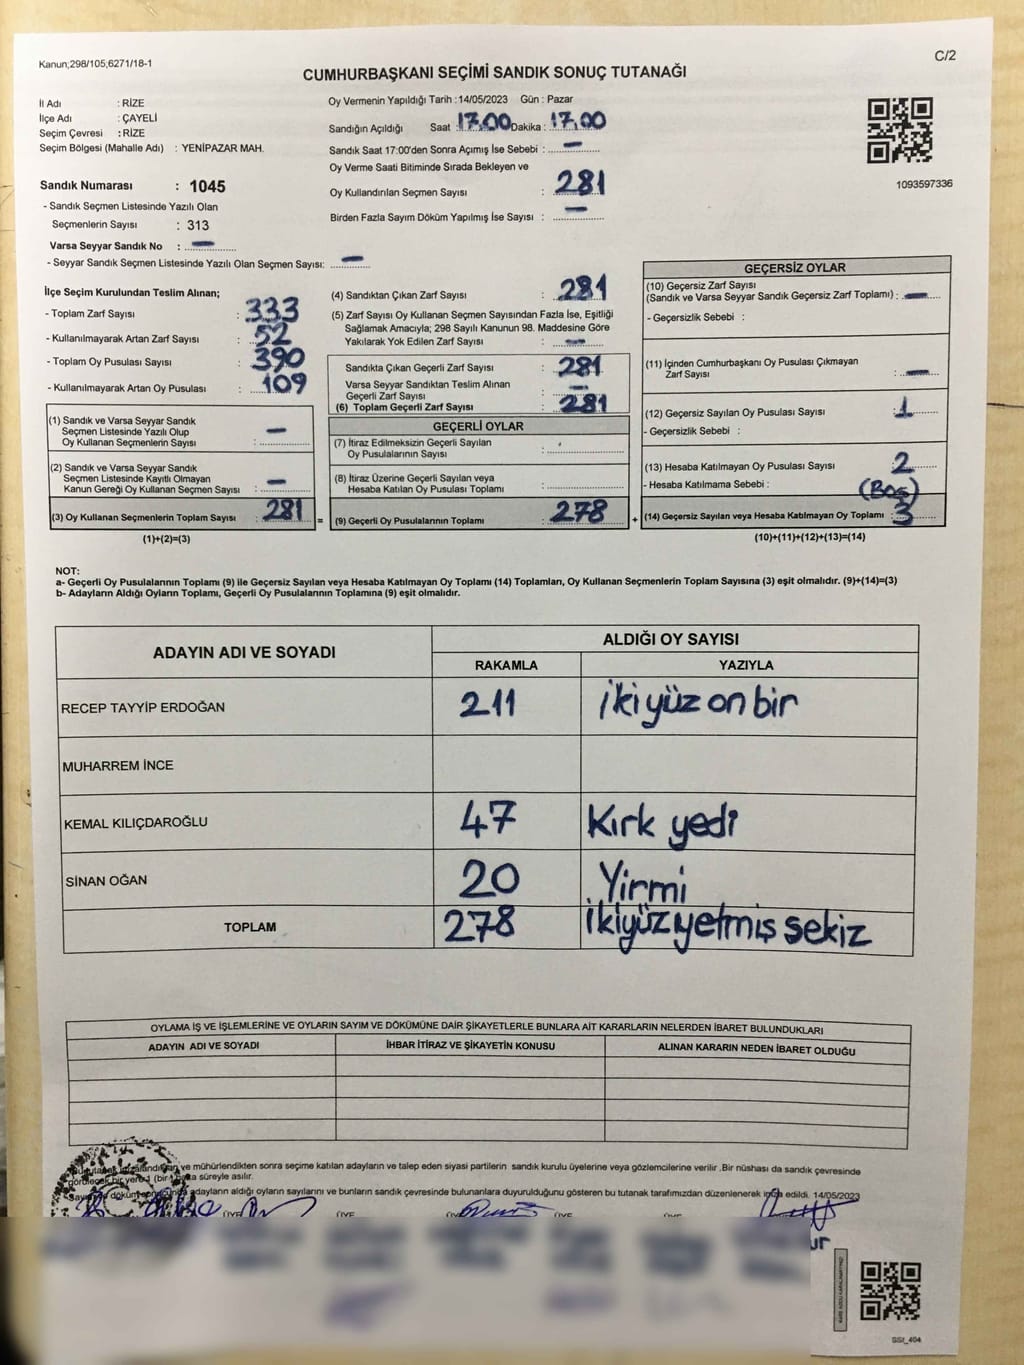 Kanun;298/105,6271/18-1
C/2
CUMHURBAŞKANI SEÇİMİ SANDIK SONUÇ TUTANAĞI
İl Adı : RİZE
İlçe Adı : ÇAYELİ
Seçim Çevresi : RİZE
Seçim Bölgesi (Mahalle Adı) : YENİPAZAR MAH.
Sandık Numarası : 1045
- Sandık Seçmen Listesinde Yazılı Olan
Seçmenlerin Sayısı : 313
Varsa Seyyar Sandık No : —
- Seyyar Sandık Seçmen Listesinde Yazılı Olan Seçmen Sayısı: —
Oy Vermenin Yapıldığı Tarih :14/05/2023 Gün : Pazar
Sandığın Açıldığı Saat : 17.00 Dakika : 17.00
Sandık Saat 17:00'den Sonra Açımış İse Sebebi : —
Oy Verme Saati Bitiminde Sırada Bekleyen ve
Oy Kullandırılan Seçmen Sayısı : 281
Birden Fazla Sayım Döküm Yapılmış İse Sayısı : —
1093597336
İlçe Seçim Kurulundan Teslim Alınan;
- Toplam Zarf Sayısı : 333
- Kullanılmayarak Artan Zarf Sayısı : 52
- Toplam Oy Pusulası Sayısı : 390
- Kullanılmayarak Artan Oy Pusulası : 109
(1) Sandık ve Varsa Seyyar Sandık
Seçmen Listesinde Yazılı Olup
Oy Kullanan Seçmenlerin Sayısı : —
(2) Sandık ve Varsa Seyyar Sandık
Seçmen Listesinde Kayıtlı Olmayan
Kanun Gereği Oy Kullanan Seçmen Sayısı : —
(3) Oy Kullanan Seçmenlerin Toplam Sayısı : 281
(1)+(2)=(3)
(4) Sandıktan Çıkan Zarf Sayısı : 281
(5) Zarf Sayısı Oy Kullanan Seçmen Sayısından Fazla İse, Eşitliği
Sağlamak Amacıyla; 298 Sayılı Kanunun 98. Maddesine Göre
Yakılarak Yok Edilen Zarf Sayısı : —
Sandıkta Çıkan Geçerli Zarf Sayısı : 281
Varsa Seyyar Sandıktan Teslim Alınan
Geçerli Zarf Sayısı : —
(6) Toplam Geçerli Zarf Sayısı : 281
GEÇERLİ OYLAR
(7) İtiraz Edilmeksizin Geçerli Sayılan
Oy Pusulalarının Sayısı :
(8) İtiraz Üzerine Geçerli Sayılan veya
Hesaba Katılan Oy Pusulası Toplamı :
= (9) Geçerli Oy Pusulalarının Toplamı : 278
GEÇERSİZ OYLAR
(10) Geçersiz Zarf Sayısı
(Sandık ve Varsa Seyyar Sandık Geçersiz Zarf Toplamı) : —
- Geçersizlik Sebebi :
(11) İçinden Cumhurbaşkanı Oy Pusulası Çıkmayan
Zarf Sayısı : —
(12) Geçersiz Sayılan Oy Pusulası Sayısı : 1
- Geçersizlik Sebebi :
(13) Hesaba Katılmayan Oy Pusulası Sayısı : 2
- Hesaba Katılmama Sebebi : (Boş)
+ (14) Geçersiz Sayılan veya Hesaba Katılmayan Oy Toplamı : 3
(10)+(11)+(12)+(13)=(14)
NOT:
a- Geçerli Oy Pusulalarının Toplamı (9) ile Geçersiz Sayılan veya Hesaba Katılmayan Oy Toplamı (14) Toplamları, Oy Kullanan Seçmenlerin Toplam Sayısına (3) eşit olmalıdır. (9)+(14)=(3)
b- Adayların Aldığı Oyların Toplamı, Geçerli Oy Pusulalarının Toplamına (9) eşit olmalıdır.
ADAYIN ADI VE SOYADI ALDIĞI OY SAYISI
RAKAMLA YAZIYLA
RECEP TAYYİP ERDOĞAN 211 İkiyüz on bir
MUHARREM İNCE
KEMAL KILIÇDAROĞLU 47 Kırk yedi
SİNAN OĞAN 20 Yirmi
TOPLAM 278 İkiyüzyetmiş sekiz
OYLAMA İŞ VE İŞLEMLERİNE VE OYLARIN SAYIM VE DÖKÜMÜNE DAİR ŞİKAYETLERLE BUNLARA AİT KARARLARIN NELERDEN İBARET BULUNDUKLARI
ADAYIN ADI VE SOYADI İHBAR İTİRAZ VE ŞİKAYETİN KONUSU ALINAN KARARIN NEDEN İBARET OLDUĞU
ve mühürlendikten sonra seçime katılan adayların ve talep eden siyasi partilerin sandık kurulu üyelerine veya gözlemcilerine verilir .Bir nüshası da sandık çevresinde
görülecek bir yere 1 (bir) hafta süreyle asılır.
adayların aldığı oyların sayılarını ve bunların sandık çevresinde bulunanlara duyurulduğunu gösteren bu tutanak tarafımızdan düzenlenerek imza edildi. 14/05/2023
ÜYE ÜYE ÜYE ÜYE
SSt_404